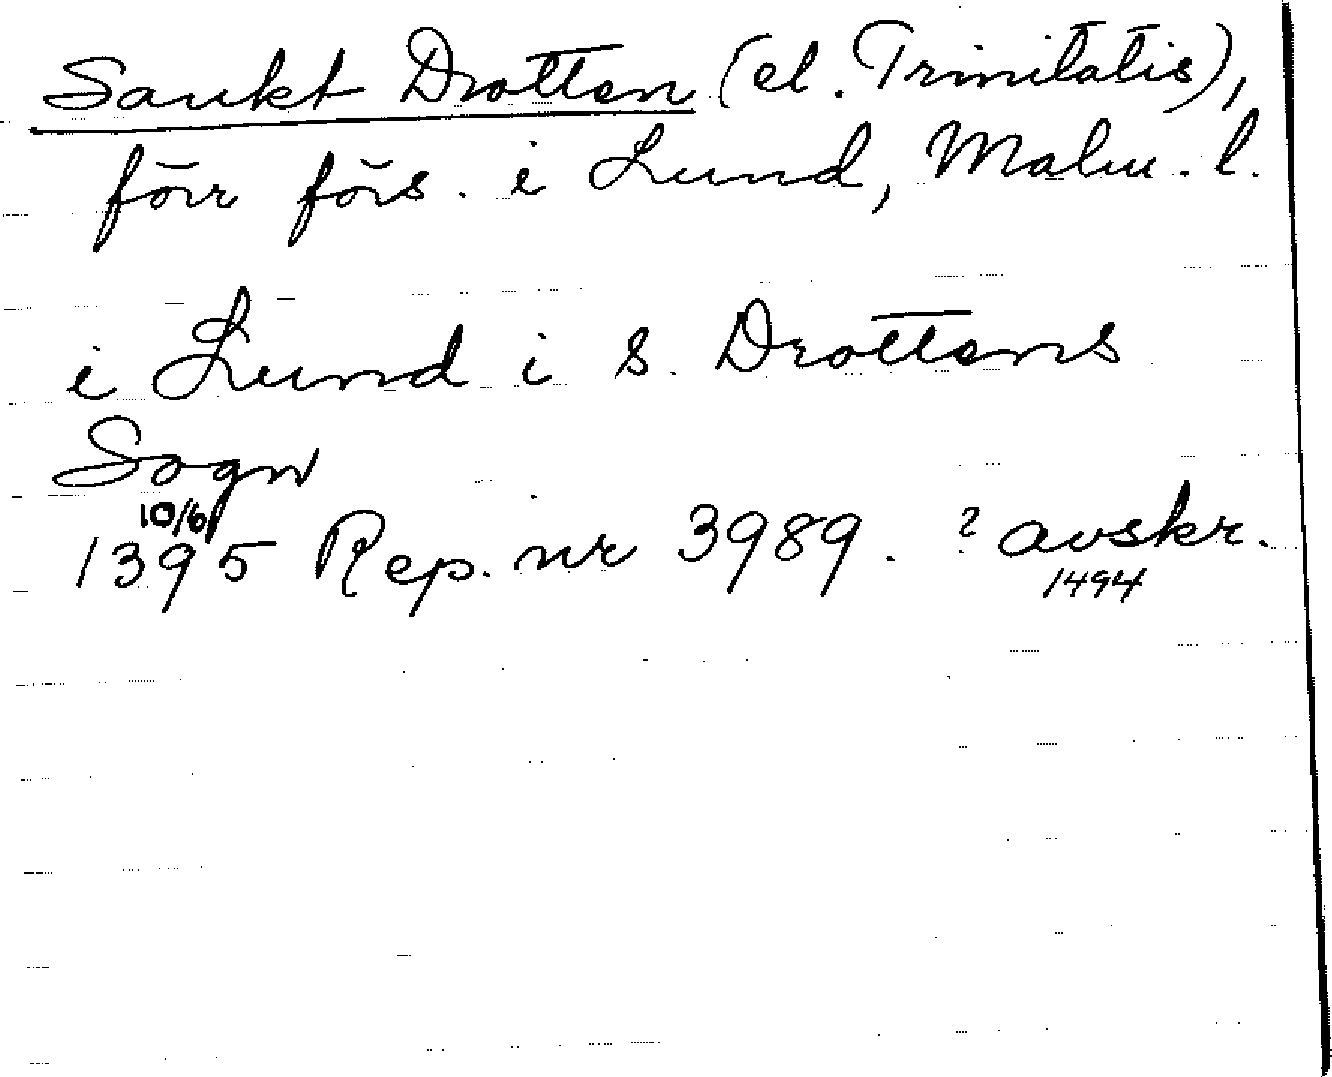 Sankt Drotten (el. Trinitatis),
förr förs. i Lund, Malm. l.
i Lund i S. Drottens
Sogn
10/6
1395 Rep. nr 3989. ? avskr.
1494